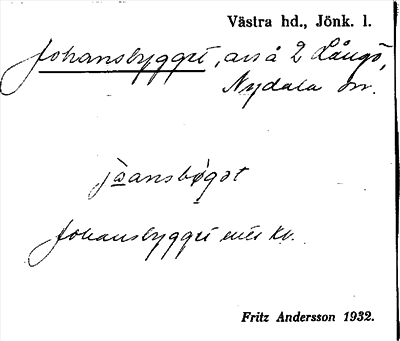 Västra hd., Jönk. l.
Johansbygget, avs å 2 Långö,
Nydala sn.
jɷ̀ansbøgət
Johansbygget enl. kv.
Fritz Andersson 1932.